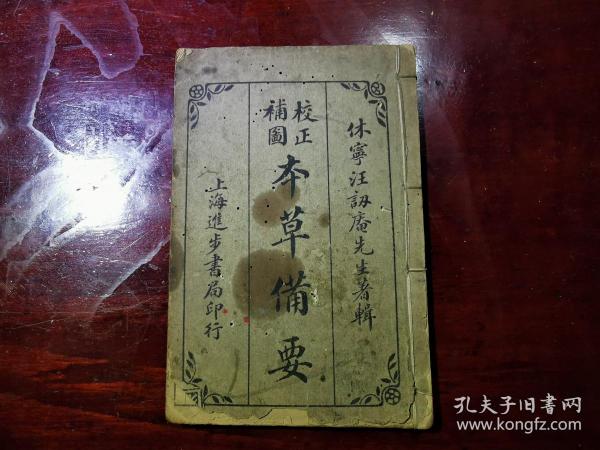 休寧汪訒庵先生著輯
校正
補圖
本草備要
上海進步書局印行
孔夫子旧書网
www.kongfz.com